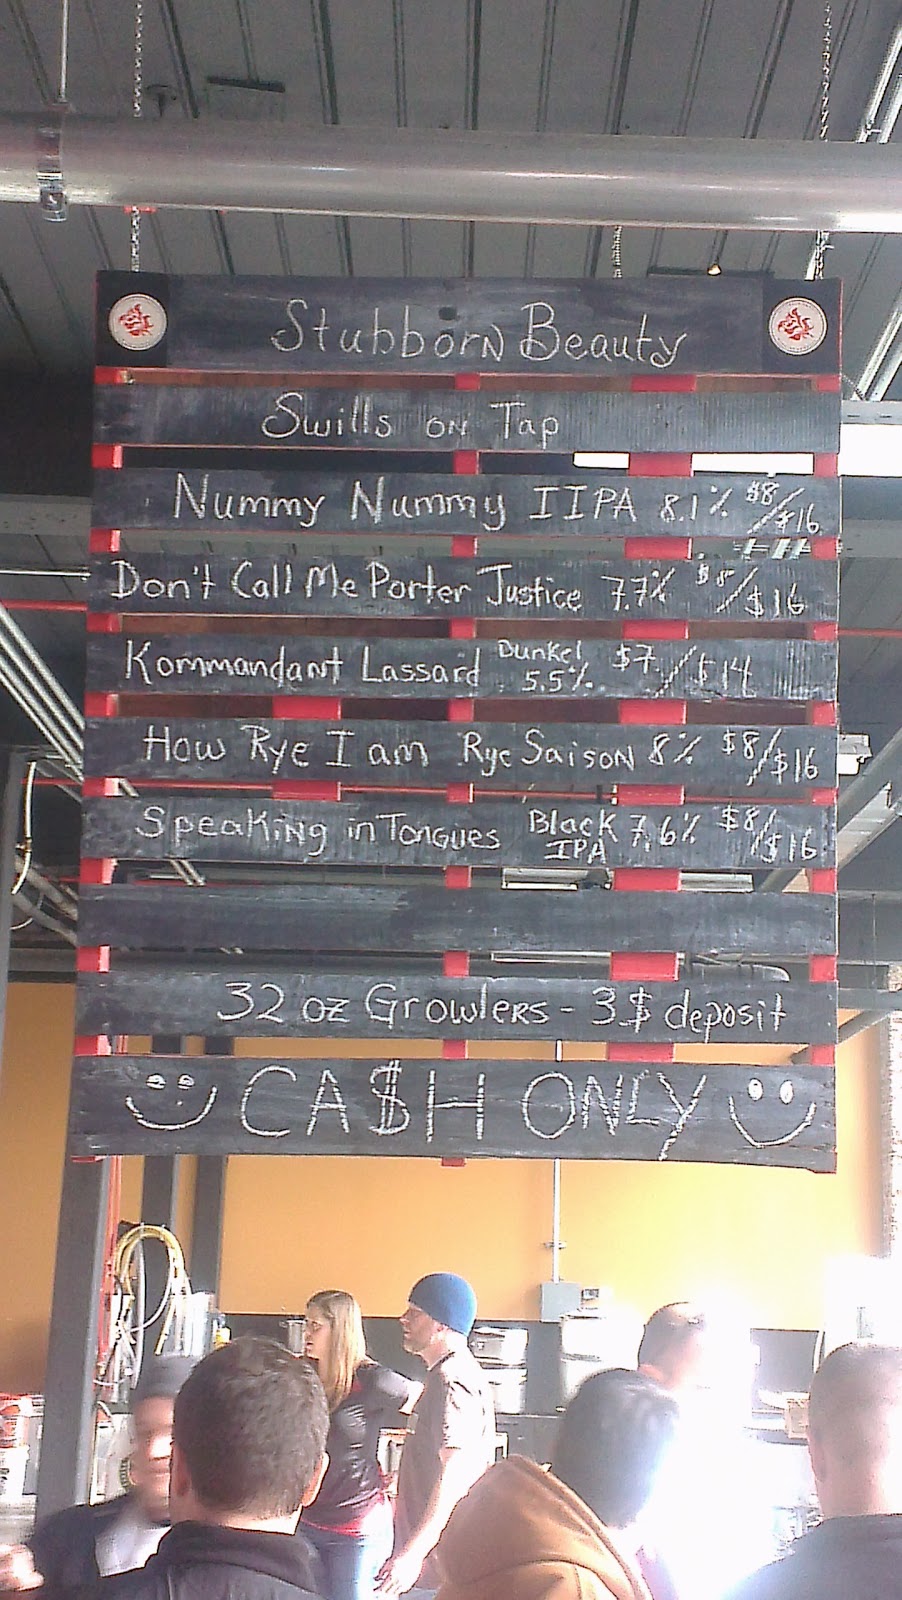 Stubborn Beauty
Swills on Tap
Nummy Nummy IIPA 8.1% $8/$16
Don't Call Me Porter Justice 7.7% $8/$16
Kommandant Lassard Dunkel 5.5% $7/$14
How Rye I am Rye Saison 8% $8/$16
Speaking in Tongues Black IPA 7.6% $8/$16
32 oz Growlers - 3$ deposit
CA$H ONLY